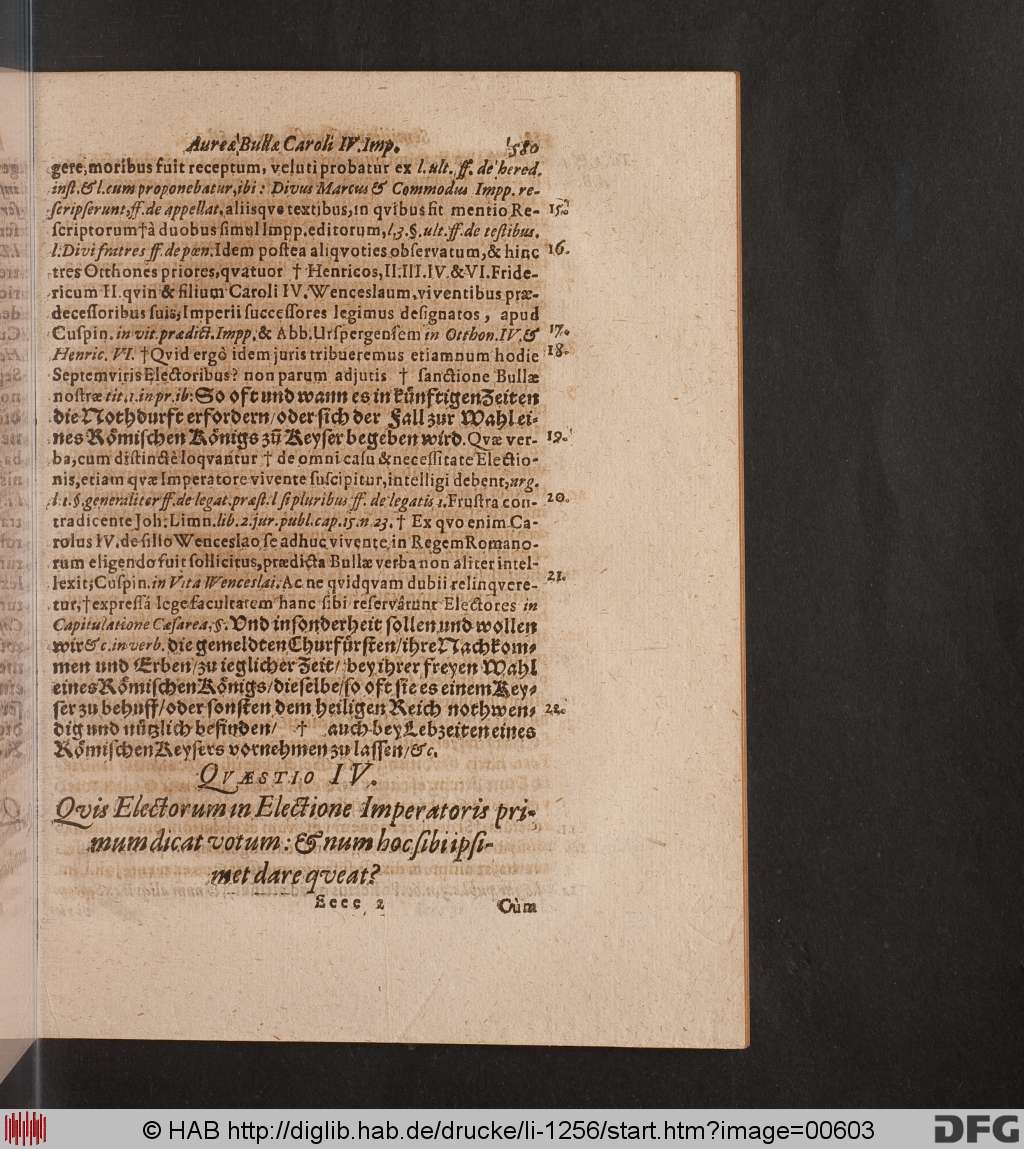 Aureæ Bullæ Caroli IV. Imp. 580
gere, moribus fuit receptum, veluti probatur ex l. ult. ff. de hered.
inst. & l. cum proponebatur, ibi: Divus Marcus & Commodus Impp. re-
scripserunt, ff. de appellat. aliisqve textibus, in qvibus fit mentio Re- 15.
scriptorum † à duobus simul Impp. editorum, l. 3. §. ult. ff. de testibus.
l. Divi fratres ff. de pœn. Idem postea aliqvoties observatum, & hinc 16.
tres Otthones priores, qvatuor † Henricos, II. III. IV. & VI. Fride-
ricum II. qvin & filium Caroli IV. Wenceslaum, viventibus præ-
decessoribus suis, Imperii successores legimus designatos, apud
Cuspin. in vit. prædict. Impp. & Abb. Urspergensem in Otthon. IV. & 17.
Henric. VI. † Qvid ergò idem juris tribueremus etiamnum hodie 18.
Septemviris Electoribus? non parum adjutis † sanctione Bullæ
nostræ tit. 1. in pr. ib: So oft und wann es in künftigen Zeiten
die Nothdurft erfordern/ oder sich der Fall zur Wahl ei-
nes Römischen Königs zū Keyser begeben wird. Qvæ ver- 19.
ba, cum distinctè loqvantur † de omni casu & necessitate Electio-
nis, etiam qvæ Imperatore vivente suscipitur, intelligi debent, arg.
l. 1. §. generaliter ff. de legat. præst. l si pluribus ff. de legatis 1. Frustra con- 20.
tradicente Joh: Limn. lib. 2. jur. publ. cap. 15. n 23. † Ex qvo enim Ca-
rolus IV. de filio Wenceslao se adhuc vivente in Regem Romano-
rum eligendo fuit sollicitus, prædicta Bullæ verba non aliter intel-
lexit; Cuspin. in Vita Wenceslai. Ac ne qvidqvam dubii relinqvere- 21.
tur, † expressâ lege facultatem hanc sibi reservârunt Electores in
Capitulatione Cæsarea, §. Und insonderheit sollen und wollen
wir & c. in verb. die gemeldten Churfürsten/ ihre Nachkom-
men und Erben/ zu ieglicher Zeit/ bey ihrer freyen Wahl
eines Römischen Königs/ dieselbe/ so oft sie es einem Key-
ser zu behuff/ oder sonsten dem heiligen Reich nothwen- 22.
dig und nützlich befinden/ † auch bey Lebzeiten eines
Römischen Keysers vornehmen zu lassen/ &c.
QVÆSTIO IV.
Qvis Electorum in Electione Imperatoris pri-
mum dicat votum: & num hoc sibi ipsi-
met dare qveat?
Eeee 2 Cùm
© HAB http://diglib.hab.de/drucke/li-1256/start.htm?image=00603
DFG